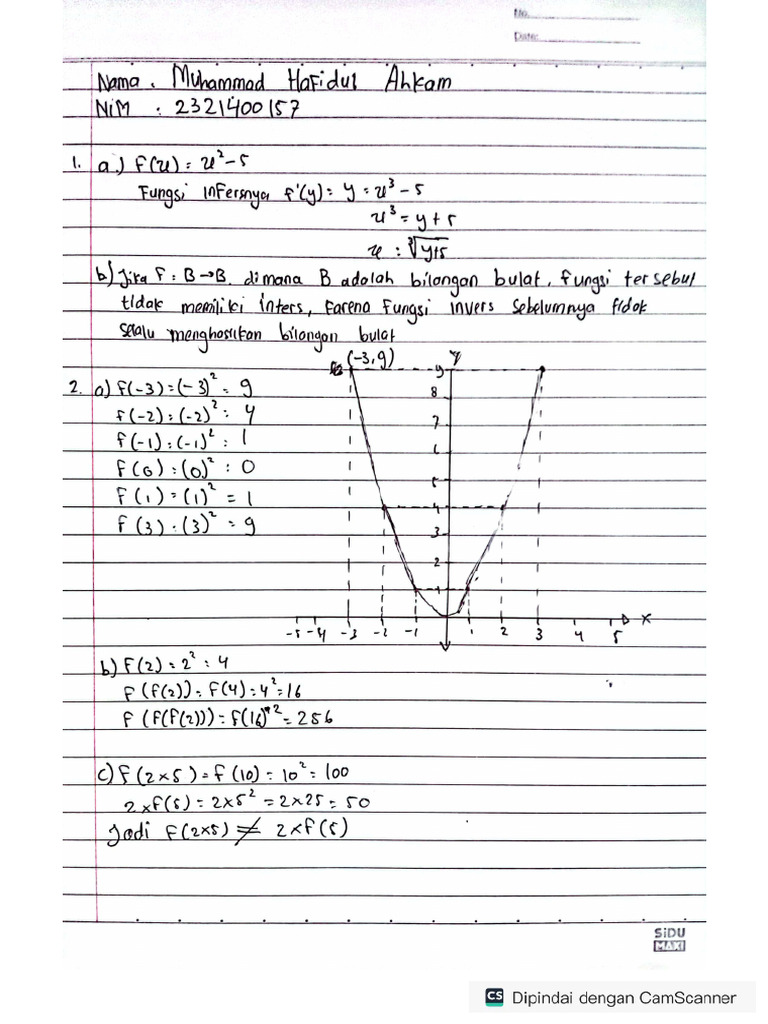 No.
Date:
Nama : Muhammad Hafidul Ahkam
NiM : 2321400157
1. a.) f(x) = x² - 5
Fungsi infersnya f'(y) = y = x³ - 5
x³ = y + 5
x : ∛y+5
b) Jika F : B → B. dimana B adalah bilangan bulat, fungsi tersebut
tidak memiliki inters, karena fungsi invers sebelumnya tidak
selalu menghasilkan bilangan bulat
2. a) f(-3) = (-3)² = 9
f(-2) = (-2)² = 4
f(-1) = (-1)² = 1
F(0) = (0)² = 0
F(1) = (1)² = 1
F(3) = (3)² = 9
(-3,9) y
9
8
7
6
5
4
3
2
1
-5 -4 -3 -2 -1 1 2 3 4 5 x
b) F(2) = 2² = 4
F(f(2)) = F(4) = 4² = 16
F(F(F(2))) = F(16)² = 256
c) f(2×5) = f(10) = 10² = 100
2×f(5) = 2×5² = 2×25 = 50
Jadi F(2×5) ≠ 2×f(5)
SiDU
MAXI
CS Dipindai dengan CamScanner